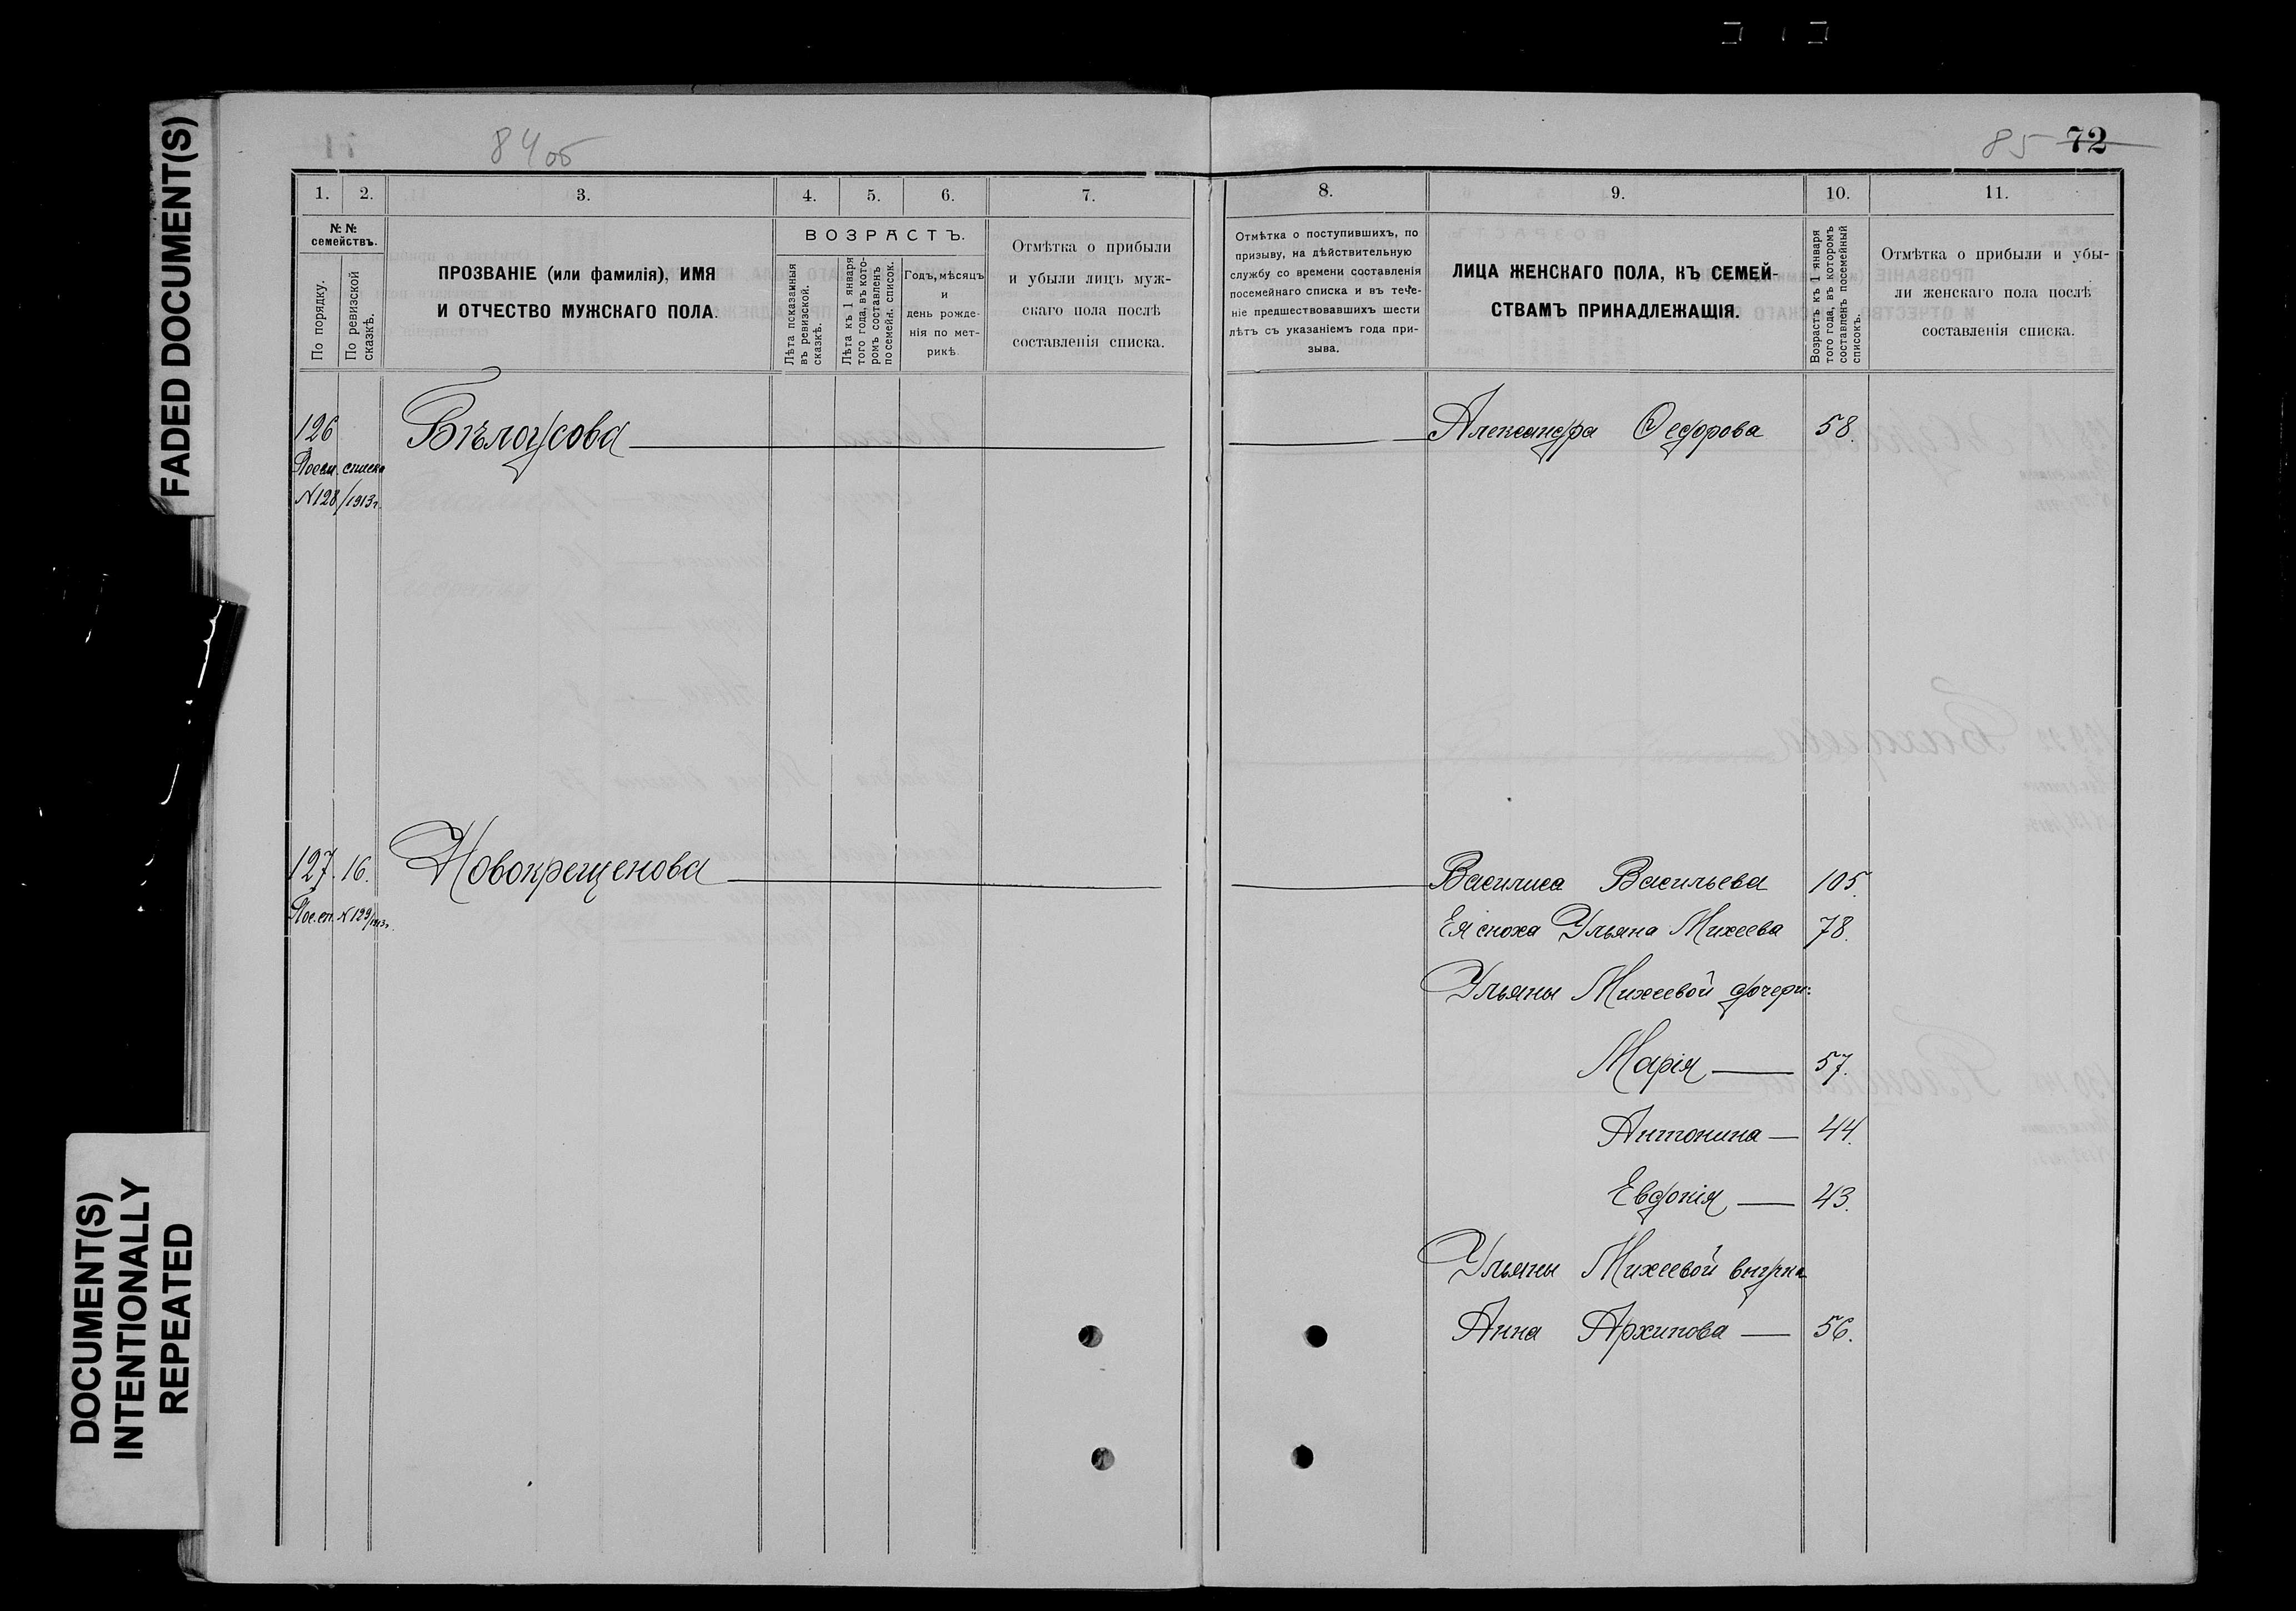 FADED DOCUMENT(S)
DOCUMENT(S)
INTENTIONALLY
REPEATED
84об
1. 2. 3. 4. 5. 6. 7.
№ №
семействъ.
По порядку.
По ревизской
сказкѣ.
ПРОЗВАНІЕ (или фамилія), ИМЯ
И ОТЧЕСТВО МУЖСКАГО ПОЛА.
ВОЗРАСТЪ.
Лѣта показанныя
въ ревизской.
сказкѣ.
Лѣта къ 1 января
того года, въ кото-
ромъ составленъ
посемейн. список.
Годъ, мѣсяцъ
и
день рожде-
нія по мет-
рикѣ
Отмѣтка о прибыли
и убыли лицъ муж-
скаго пола послѣ
составленія списка.
126 Бѣлоусова
Посем. списка
N 128/1913г.
127. 16. Новокрещенова
Пос. сп. N 129/1913г.
85 72
8. 9. 10. 11.
Отмѣтка о поступившихъ, по
призыву, на дѣйствительную
службу со времени составленія
посемейнаго списка и въ тече-
ніе предшествовавшихъ шести
лѣтъ съ указаніемъ года при-
зыва.
ЛИЦА ЖЕНСКАГО ПОЛА, КЪ СЕМЕЙ-
СТВАМЪ ПРИНАДЛЕЖАЩІЯ.
Возрастъ къ 1 января
того года, въ которомъ
составленъ посемейный
списокъ.
Отмѣтка о прибыли и убы-
ли женскаго пола послѣ
составленія списка.
Александра Ѳедорова 58.
Василиса Васильева 105.
Ея сноха Ульяна Михеева 78.
Ульяны Михеевой дочери:
Марія — 57.
Антонина — 44.
Евдокія — 43.
Ульяны Михеевой внучка
Анна Архипова — 56.